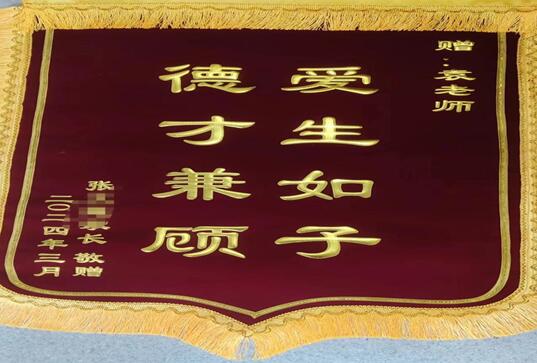 赠:袁老师
爱生如子
德才兼顾
张家长 敬赠
二〇二四年三月